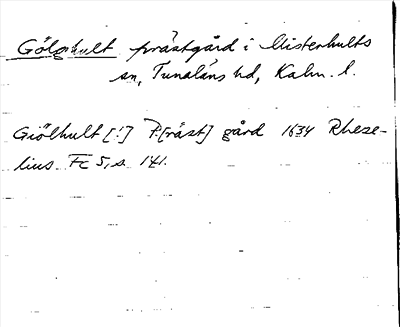 Gölphult prästgård i Misterhults
sn, Tunaläns hd, Kalm. l.
Giölhult [!] P.[räst] gård 1634 Rheze-
lius Fc 5, s. 141.